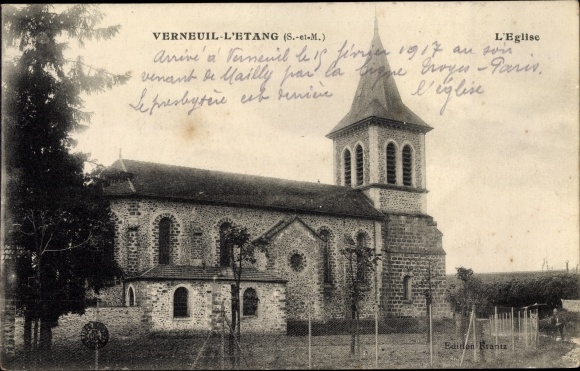 VERNEUIL-L'ETANG (S.-et-M.)
L'Eglise
Arrivé à Verneuil le 15 février 1917 au soir
venant de Mailly par la ligne Troyes - Paris.
Le presbytère est derrière l'église
Edition Brantz